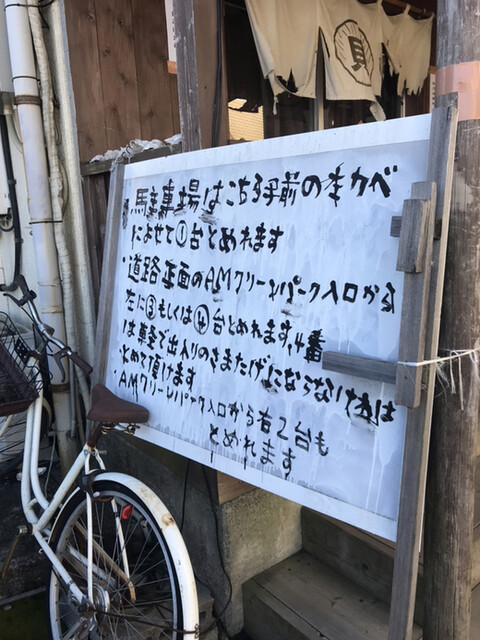 貝
・駐車場はこちら手前の木カベ
によせて①台とめれます
・道路正面のAMクリーンパーク入口から
左に③もしくは④台とめれます。4番
は車で出入りのさまたげにならなければ
止めて頂けます
・AMクリーンパーク入口から右2台も
とめれます